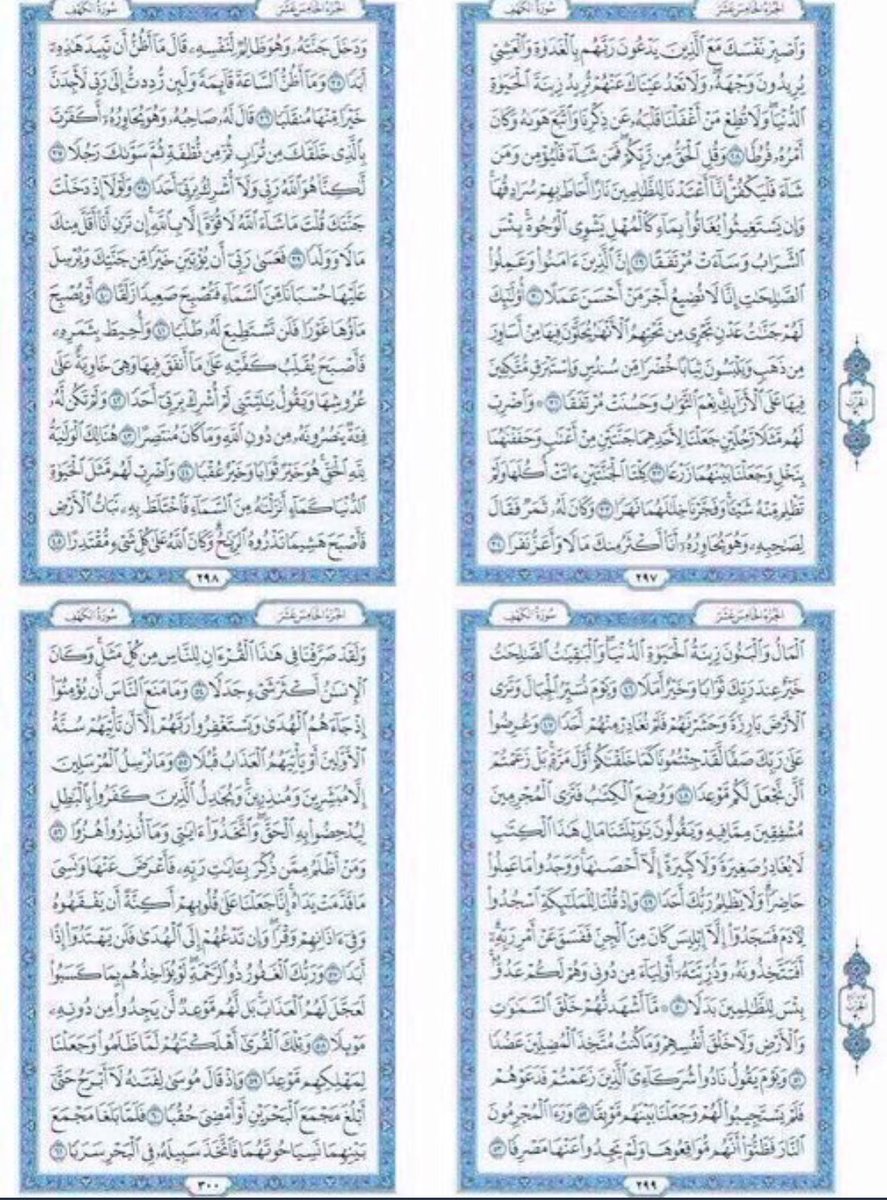 الجزء الخامس عشر
سورة الكهف
واصبر نفسك مع الذين يدعون ربهم بالغدوة والعشي
يريدون وجهه ولا تعد عيناك عنهم تريد زينة الحيوة
الدنيا ولا تطع من أغفلنا قلبه عن ذكرنا واتبع هوىه وكان
أمره فرطا ٢٨ وقل الحق من ربكم فمن شاء فليؤمن ومن
شاء فليكفر إنا أعتدنا للظلمين نارا أحاط بهم سرادقها
وإن يستغيثوا يغاثوا بماء كالمهل يشوي الوجوه بئس
الشراب وساءت مرتفقا ٢٩ إن الذين ءامنوا وعملوا
الصلحت إنا لا نضيع أجر من أحسن عملا ٣٠ أولئك
لهم جنت عدن تجري من تحتهم الأنهر يحلون فيها من أساور
من ذهب ويلبسون ثيابا خضرا من سندس وإستبرق متكئين
فيها على الأرائك نعم الثواب وحسنت مرتفقا ٣١ ۞ واضرب
لهم مثلا رجلين جعلنا لأحدهما جنتين من أعنب وحففنهما
بنخل وجعلنا بينهما زرعا ٣٢ كلتا الجنتين ءاتت أكلها ولم
تظلم منه شيئا وفجرنا خللهما نهرا ٣٣ وكان له ثمر فقال
لصحبه وهو يحاوره أنا أكثر منك مالا وأعز نفرا ٣٤
٢٩٧
الجزء الخامس عشر
سورة الكهف
ودخل جنته وهو ظالم لنفسه قال ما أظن أن تبيد هذه
أبدا ٣٥ وما أظن الساعة قائمة ولئن رددت إلى ربي لأجدن
خيرا منها منقلبا ٣٦ قال له صاحبه وهو يحاوره أكفرت
بالذي خلقك من تراب ثم من نطفة ثم سوىك رجلا ٣٧
لكنا هو الله ربي ولا أشرك بربي أحدا ٣٨ ولولا إذ دخلت
جنتك قلت ما شاء الله لا قوة إلا بالله إن ترن أنا أقل منك
مالا وولدا ٣٩ فعسى ربي أن يؤتين خيرا من جنتك ويرسل
عليها حسبانا من السماء فتصبح صعيدا زلقا ٤٠ أو يصبح
ماؤها غورا فلن تستطيع له طلبا ٤١ وأحيط بثمره
فأصبح يقلب كفيه على ما أنفق فيها وهي خاوية على
عروشها ويقول يليتني لم أشرك بربي أحدا ٤٢ ولم تكن له
فئة ينصرونه من دون الله وما كان منتصرا ٤٣ هنالك الولية
لله الحق هو خير ثوابا وخير عقبا ٤٤ واضرب لهم مثل الحيوة
الدنيا كماء أنزلنه من السماء فاختلط به نبات الأرض
فأصبح هشيما تذروه الريح وكان الله على كل شيء مقتدرا ٤٥
٢٩٨
الجزء الخامس عشر
سورة الكهف
المال والبنون زينة الحيوة الدنيا والبقيت الصلحت
خير عند ربك ثوابا وخير أملا ٤٦ ويوم نسير الجبال وترى
الأرض بارزة وحشرنهم فلم نغادر منهم أحدا ٤٧ وعرضوا
على ربك صفا لقد جئتمونا كما خلقنكم أول مرة بل زعمتم
ألن نجعل لكم موعدا ٤٨ ووضع الكتب فترى المجرمين
مشفقين مما فيه ويقولون يويلتنا مال هذا الكتب
لا يغادر صغيرة ولا كبيرة إلا أحصىها ووجدوا ما عملوا
حاضرا ولا يظلم ربك أحدا ٤٩ وإذ قلنا للملئكة اسجدوا
لأدم فسجدوا إلا إبليس كان من الجن ففسق عن أمر ربه
أفتتخذونه وذريته أولياء من دوني وهم لكم عدو
بئس للظلمين بدلا ٥٠ ۞ ما أشهدتهم خلق السموت
والأرض ولا خلق أنفسهم وما كنت متخذ المضلين عضدا
٥١ ويوم يقول نادوا شركاءي الذين زعمتم فدعوهم
فلم يستجيبوا لهم وجعلنا بينهم موبقا ٥٢ ورءا المجرمون
النار فظنوا أنهم مواقعوها ولم يجدوا عنها مصرفا ٥٣
٢٩٩
الجزء الخامس عشر
سورة الكهف
ولقد صرفنا في هذا القرءان للناس من كل مثل وكان
الإنسن أكثر شيء جدلا ٥٤ وما منع الناس أن يؤمنوا
إذ جاءهم الهدى ويستغفروا ربهم إلا أن تأتيهم سنة
الأولين أو يأتيهم العذاب قبلا ٥٥ وما نرسل المرسلين
إلا مبشرين ومنذرين ويجدل الذين كفروا بالبطل
ليدحضوا به الحق واتخذوا ءايتي وما أنذروا هزوا ٥٦
ومن أظلم ممن ذكر بءايت ربه فأعرض عنها ونسي
ما قدمت يداه إنا جعلنا على قلوبهم أكنة أن يفقهوه
وفي ءاذانهم وقرا وإن تدعهم إلى الهدى فلن يهتدوا إذا
أبدا ٥٧ وربك الغفور ذو الرحمة لو يؤاخذهم بما كسبوا
لعجل لهم العذاب بل لهم موعد لن يجدوا من دونه
موئلا ٥٨ وتلك القرى أهلكنهم لما ظلموا وجعلنا
لمهلكهم موعدا ٥٩ وإذ قال موسى لفتىه لا أبرح حتى
أبلغ مجمع البحرين أو أمضي حقبا ٦٠ فلما بلغا مجمع
بينهما نسيا حوتهما فاتخذ سبيله في البحر سربا ٦١
٣٠٠